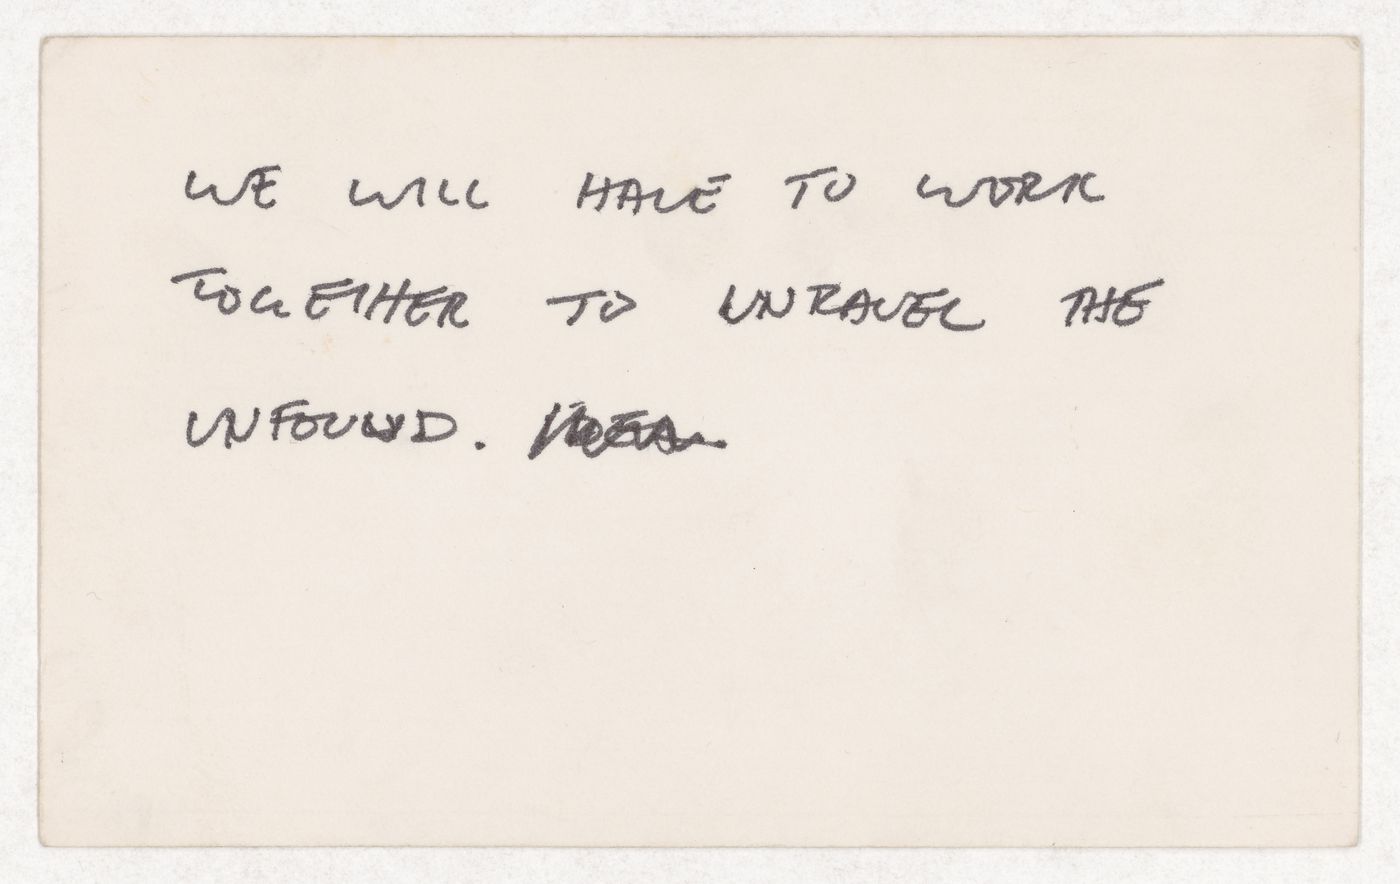 WE WILL HAVE TO WORK
TOGETHER TO UNRAVEL THE
UNFOUND.